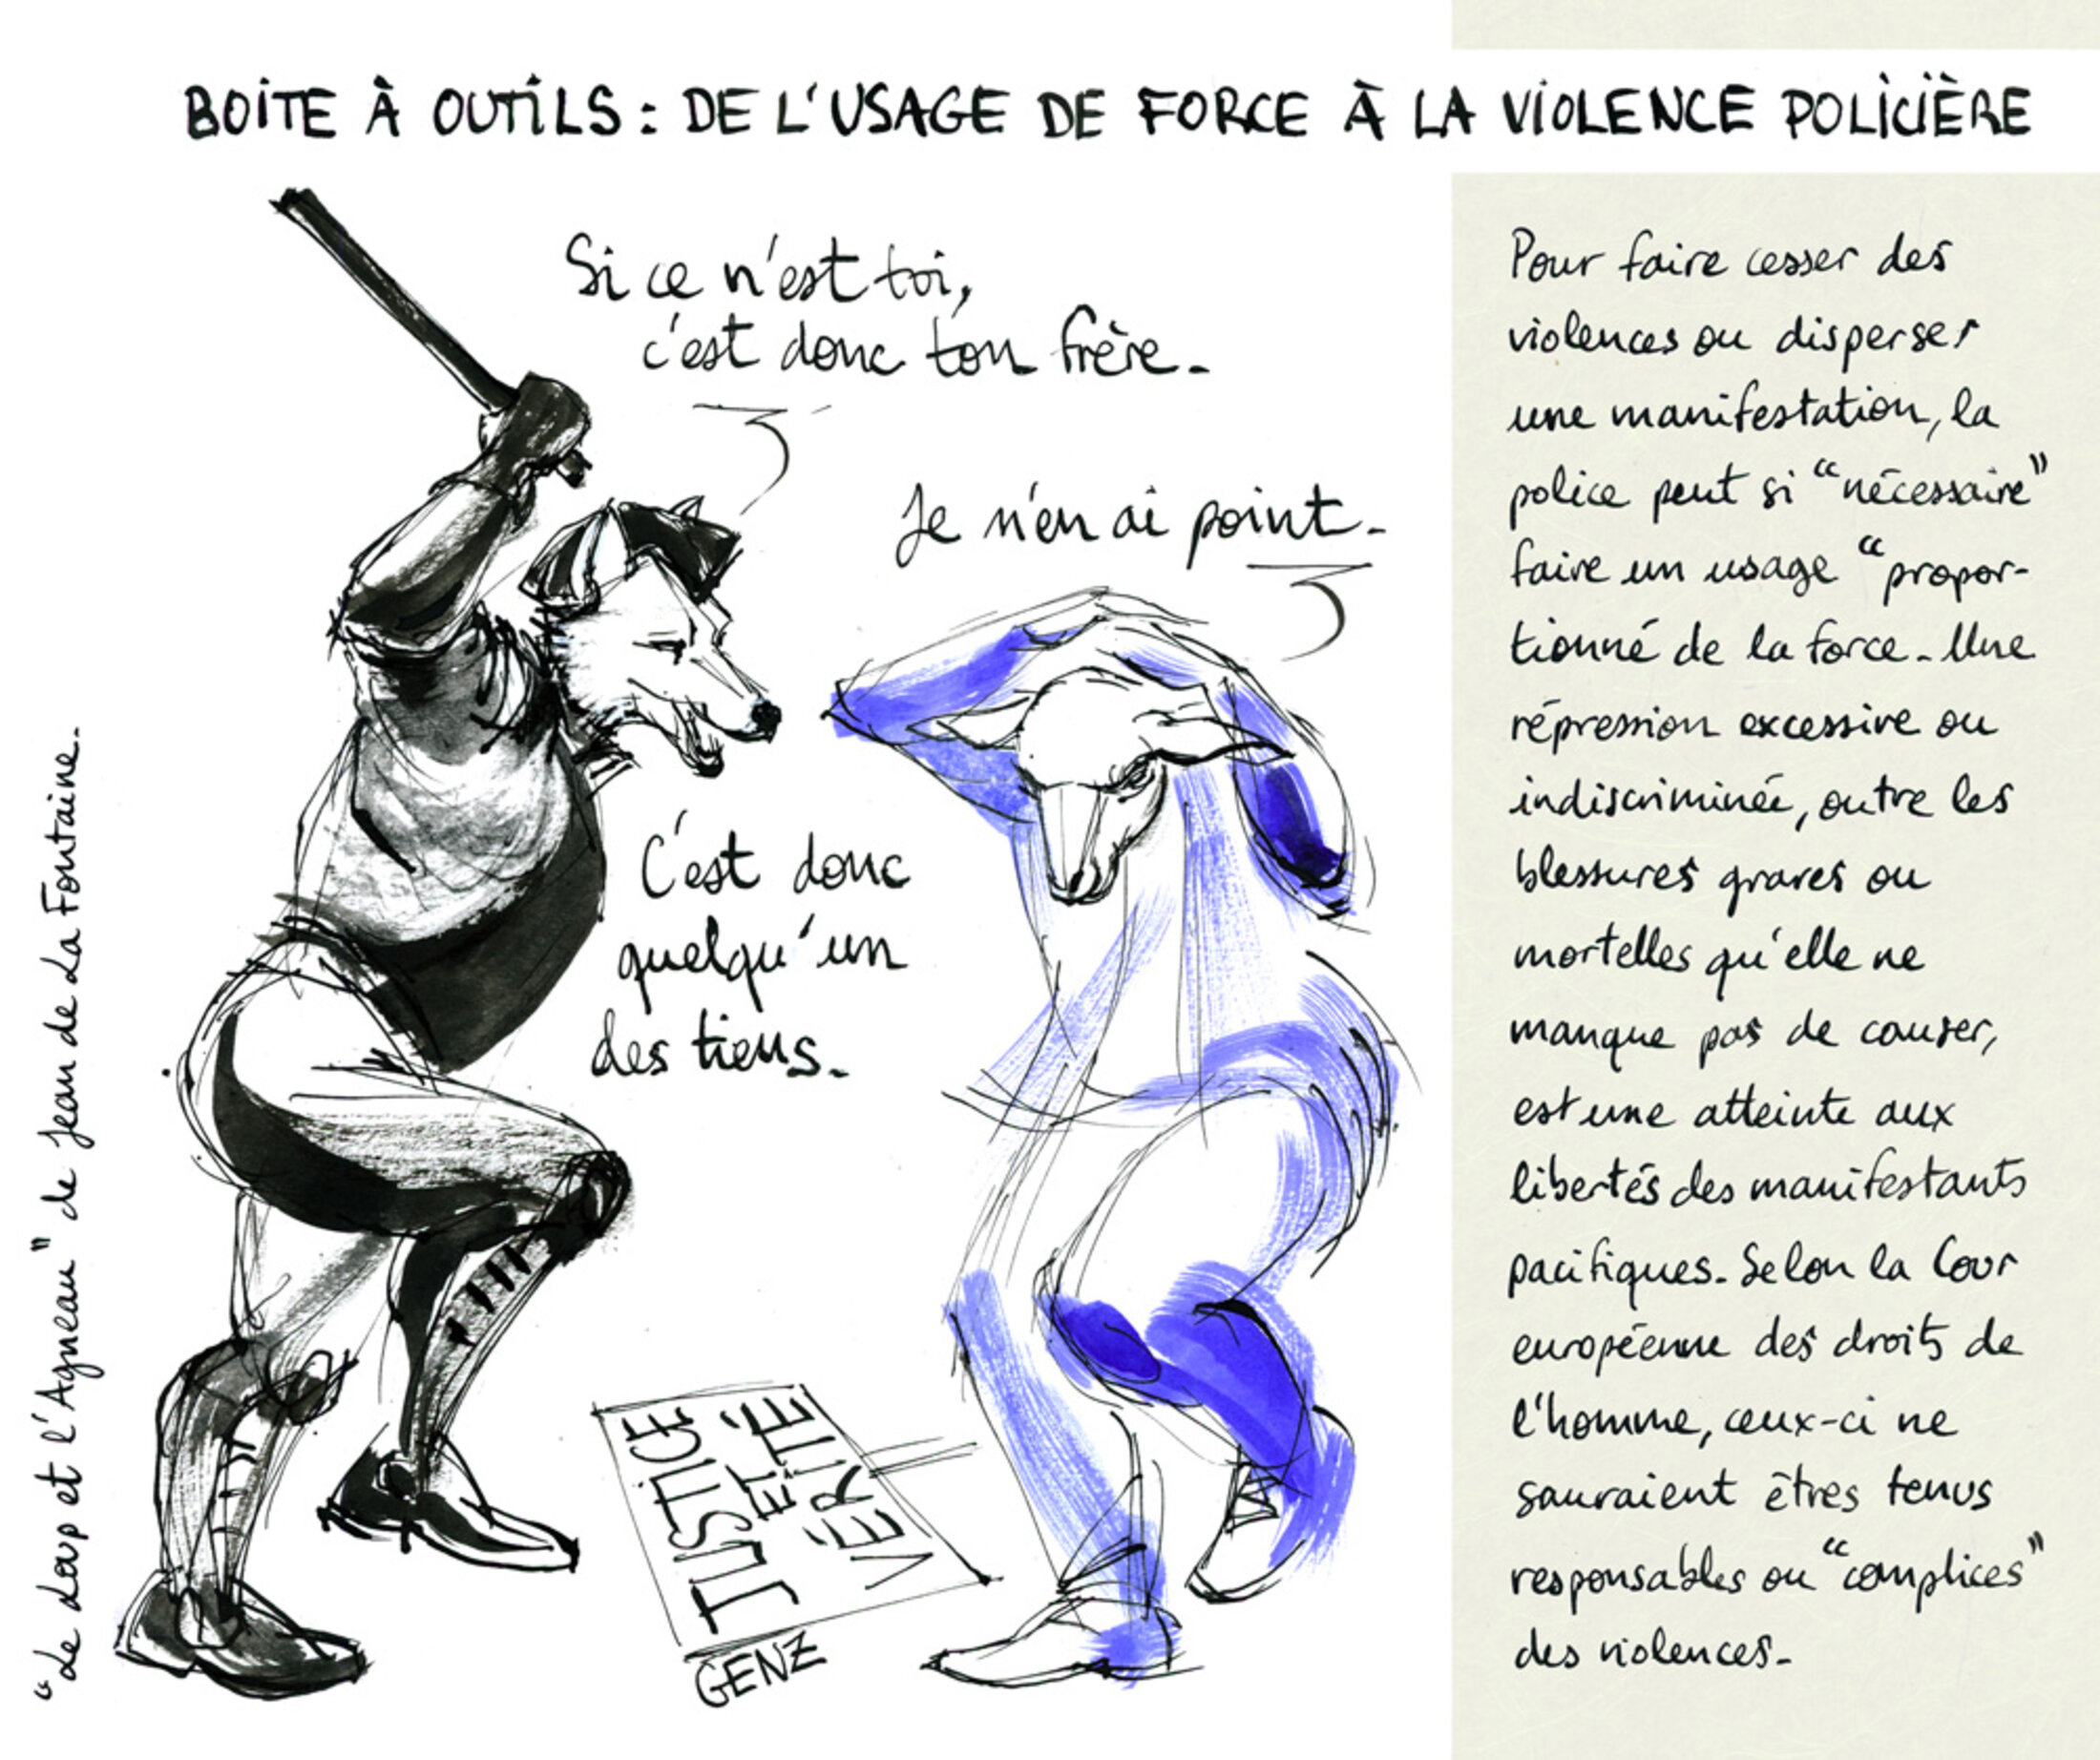 BOITE À OUTILS : DE L'USAGE DE FORCE À LA VIOLENCE POLICIÈRE
Si ce n'est toi,
c'est donc ton frère.
Je n'en ai point.
C'est donc
quelqu'un
des tiens.
JUSTICE
ET
VÉRITÉ
GENZ
"Le Loup et l'Agneau" de Jean de La Fontaine.
Pour faire cesser des
violences ou disperser
une manifestation, la
police peut si "nécessaire"
faire un usage "propor-
tionné de la force. Une
répression excessive ou
indiscriminée, outre les
blessures graves ou
mortelles qu'elle ne
manque pas de causer,
est une atteinte aux
libertés des manifestants
pacifiques. Selon la Cour
européenne des droits de
l'homme, ceux-ci ne
sauraient êtres tenus
responsables ou "complices"
des violences.